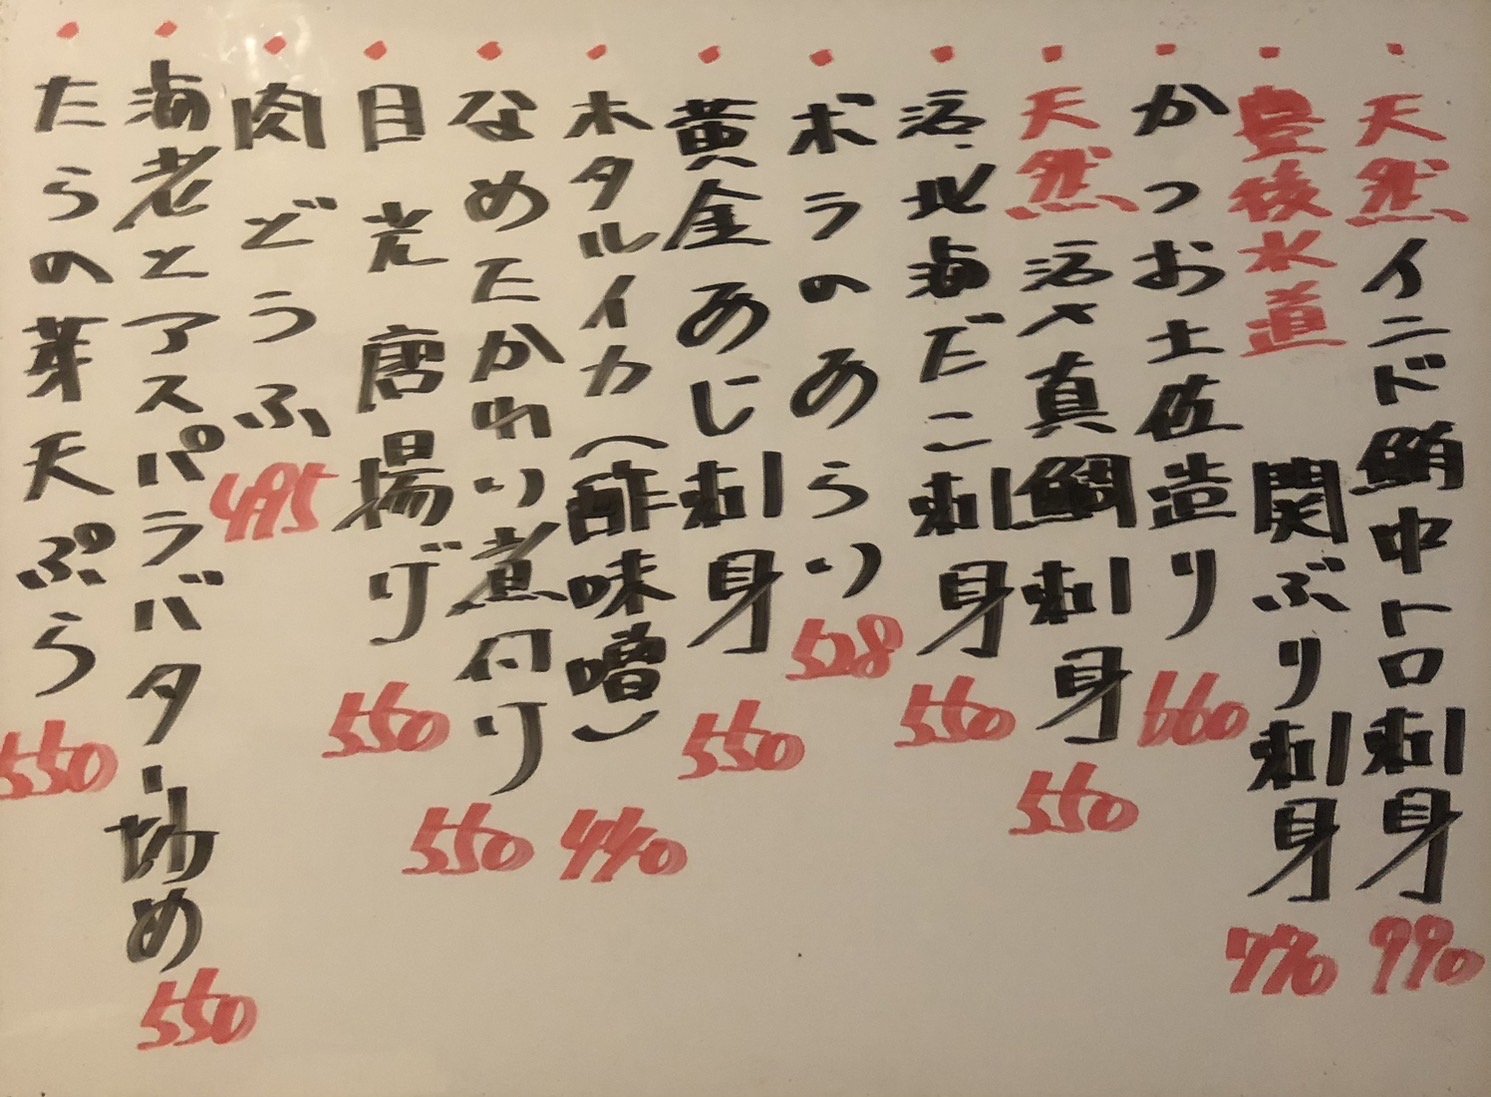 ・天然インド鮪中トロ刺身 990
・豊後水道 関ぶり刺身 770
・かつお土佐造り 660
・天然活〆真鯛刺身 550
・活北海だこ刺身 550
・ボラのあらい 528
・黄金あじ刺身 550
・ホタルイカ(酢味噌) 440
・なめたかれい煮付け 550
・目光唐揚げ 550
・肉どうふ 495
・海老とアスパラバター炒め 550
・たらの芽天ぷら 550